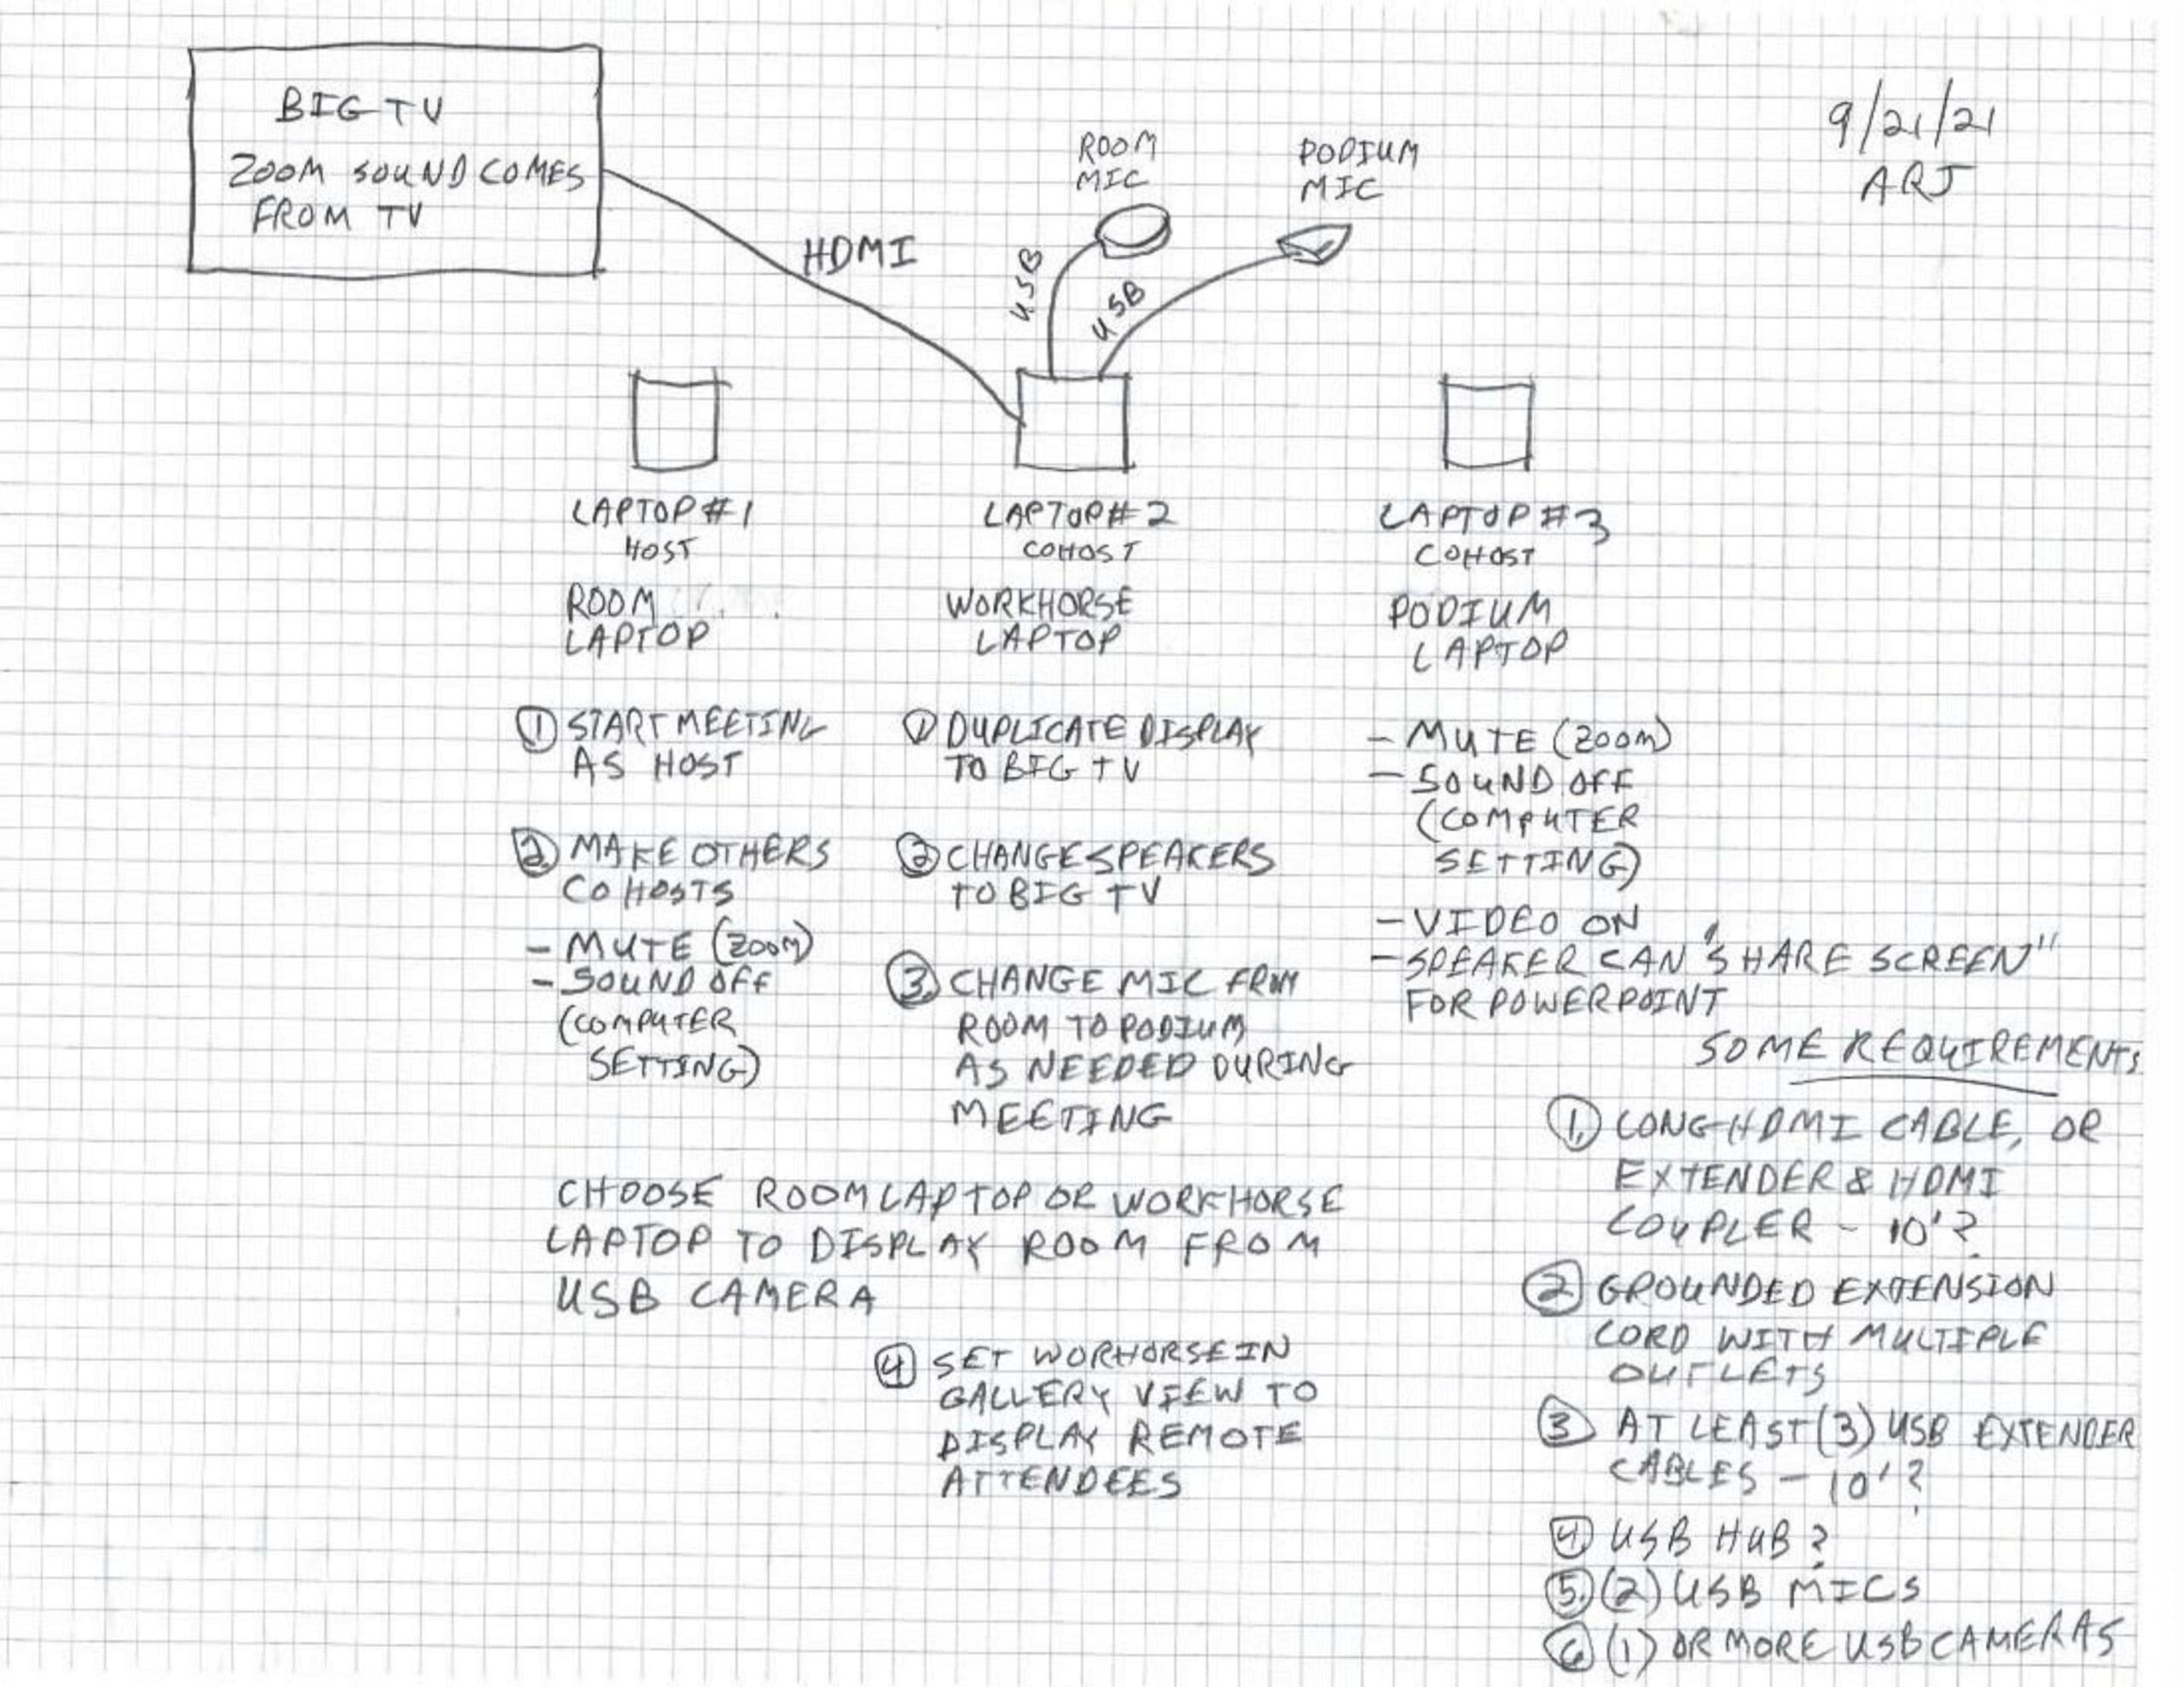 BIG TV
ZOOM SOUND COMES
FROM TV
HDMI
ROOM
MIC
PODIUM
MIC
USB
USB
9/21/21
ARJ
LAPTOP #1
HOST
ROOM
LAPTOP
① START MEETING
AS HOST
② MAKE OTHERS
CO HOSTS
- MUTE (ZOOM)
- SOUND OFF
(COMPUTER
SETTING)
LAPTOP #2
COHOST
WORKHORSE
LAPTOP
① DUPLICATE DISPLAY
TO BIG TV
② CHANGE SPEAKERS
TO BIG TV
③ CHANGE MIC FROM
ROOM TO PODIUM
AS NEEDED DURING
MEETING
CHOOSE ROOM LAPTOP OR WORKHORSE
LAPTOP TO DISPLAY ROOM FROM
USB CAMERA
④ SET WORHORSE IN
GALLERY VIEW TO
DISPLAY REMOTE
ATTENDEES
LAPTOP #3
COHOST
PODIUM
LAPTOP
- MUTE (ZOOM)
- SOUND OFF
(COMPUTER
SETTING)
- VIDEO ON
- SPEAKER CAN "SHARE SCREEN"
FOR POWERPOINT
SOME REQUIREMENTS
① LONG HDMI CABLE, OR
EXTENDER & HDMI
COUPLER - 10'?
② GROUNDED EXTENSION
CORD WITH MULTIPLE
OUTLETS
③ AT LEAST (3) USB EXTENDER
CABLES - 10'?
④ USB HUB?
⑤ (2) USB MICS
⑥ (1) OR MORE USB CAMERAS